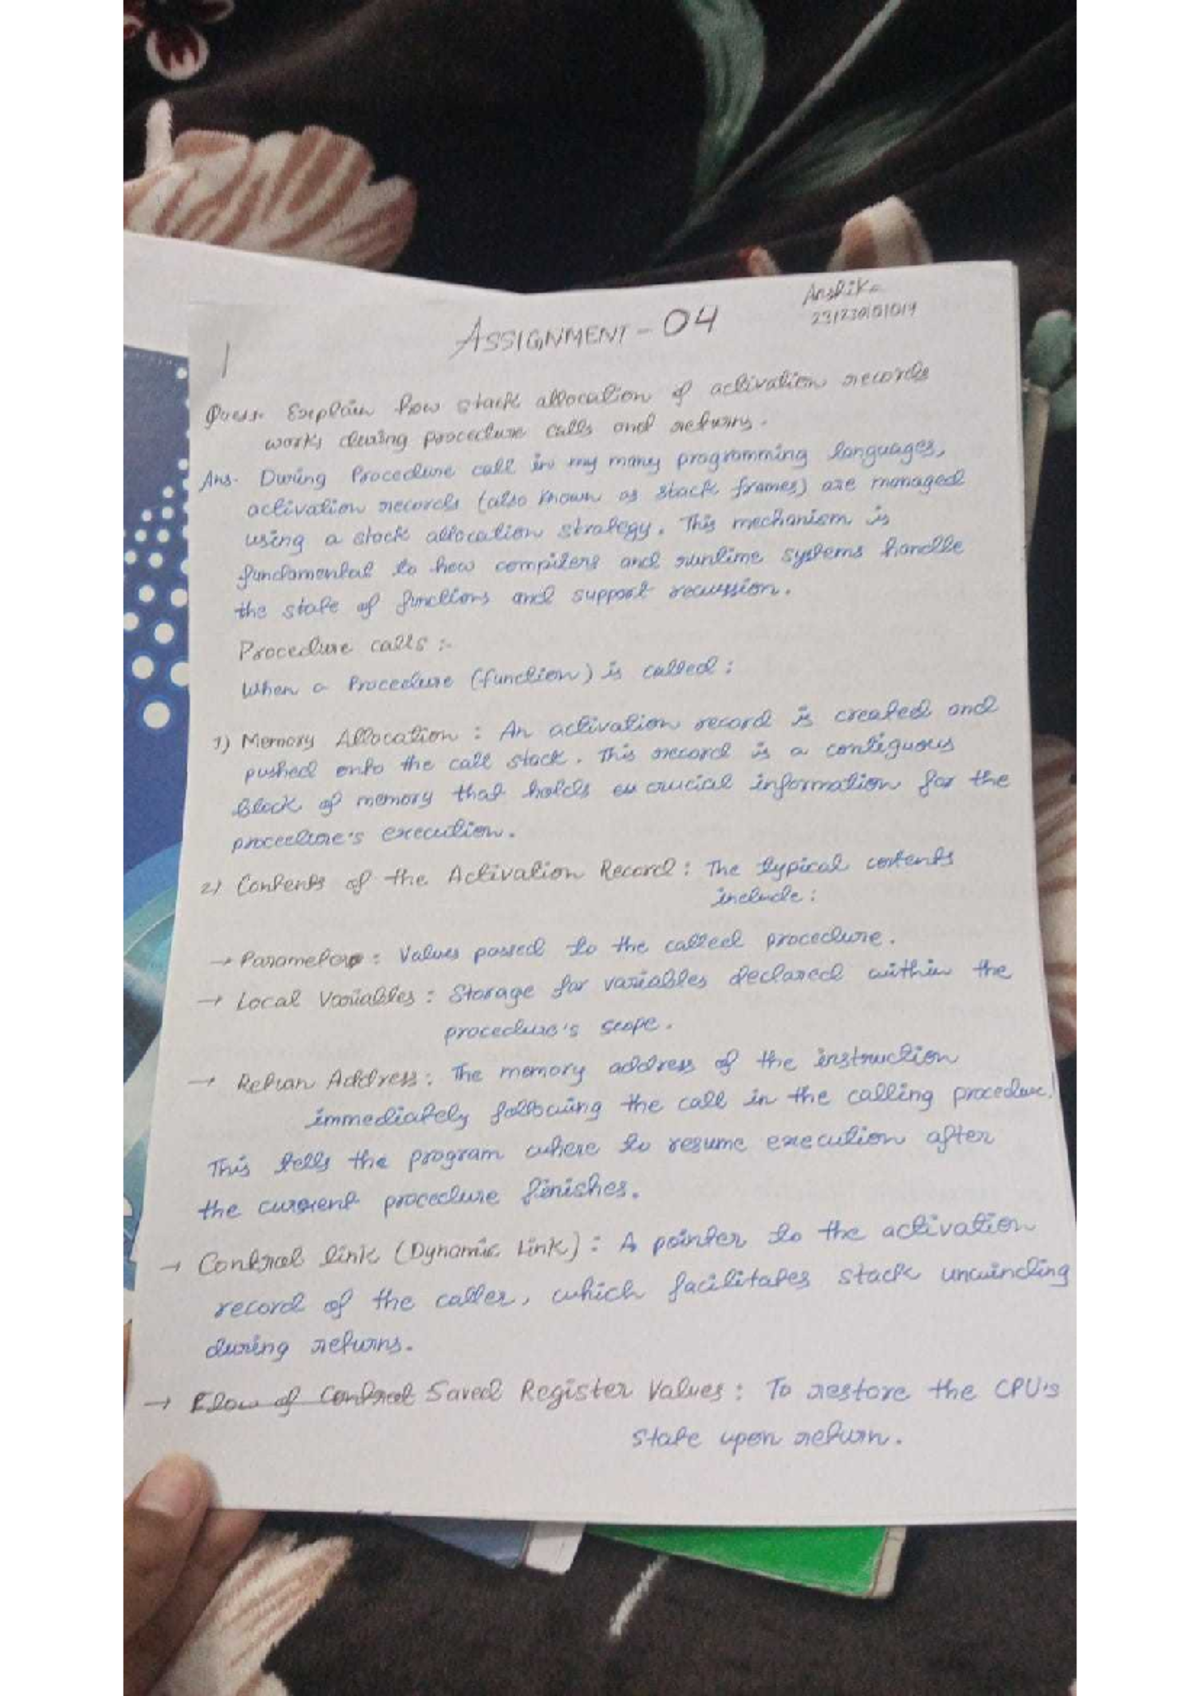 Anshika
231230101019
ASSIGNMENT - 04
1
Ques. Explain how stack allocation of activation records
works during procedure calls and returns.
Ans- During Procedure call in my many programming languages,
activation records (also known as stack frames) are managed
using a stack allocation strategy. This mechanism is
fundamental to how compilers and runtime systems handle
the state of functions and support recussion.
Procedure calls :-
When a Procedure (function) is called :
1) Memory Allocation : An activation record is created and
pushed onto the call stack. This record is a contiguous
block of memory that holds crucial information for the
procedure's execution.
2) Contents of the Activation Record : The typical contents
include :
→ Parameters : Values passed to the called procedure.
→ Local Variables : Storage for variables declared within the
procedure's scope.
→ Retran Address : The memory address of the instruction
immediately following the call in the calling procedure.
This tells the program where to resume execution after
the current procedure finishes.
→ Control link (Dynamic Link) : A pointer to the activation
record of the caller, which facilitates stack unwinding
during returns.
→ Flow of Control Saved Register Values : To restore the CPU's
state upon return.